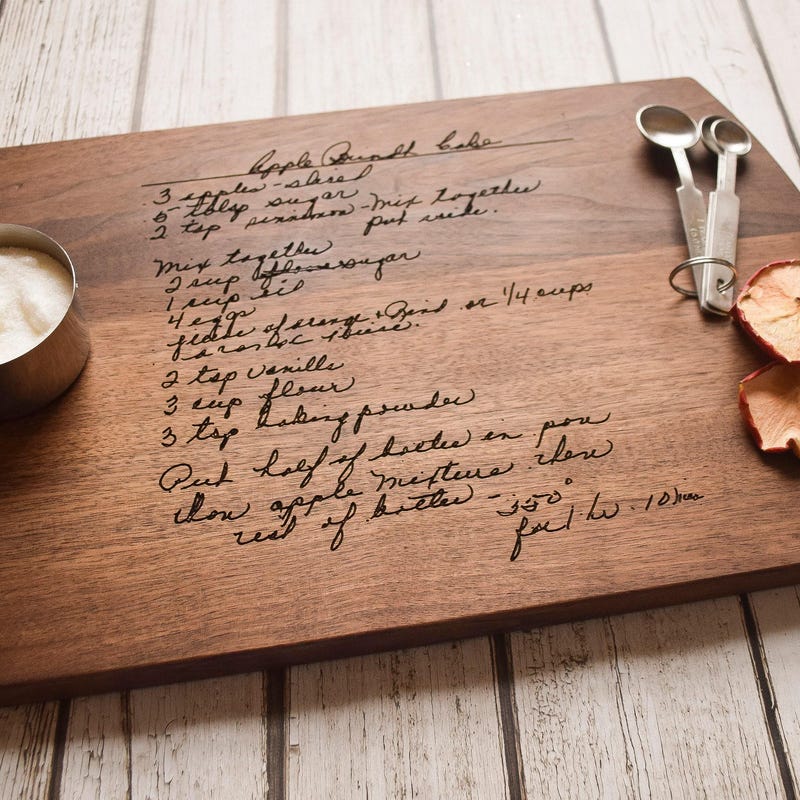 Apple Bundt Cake
3 apples - sliced
5 tblsp sugar
2 tsp cinnamon - Mix together
put aside.
Mix together
2 cup sugar
1 cup oil
4 eggs
juice of orange + Rind or 1/4 cups
orange juice.
2 tsp vanilla
3 cup flour
3 tsp baking powder
Put half of batter in pan
then apple mixture then
rest of batter - 350°
for 1 hr. 10 min